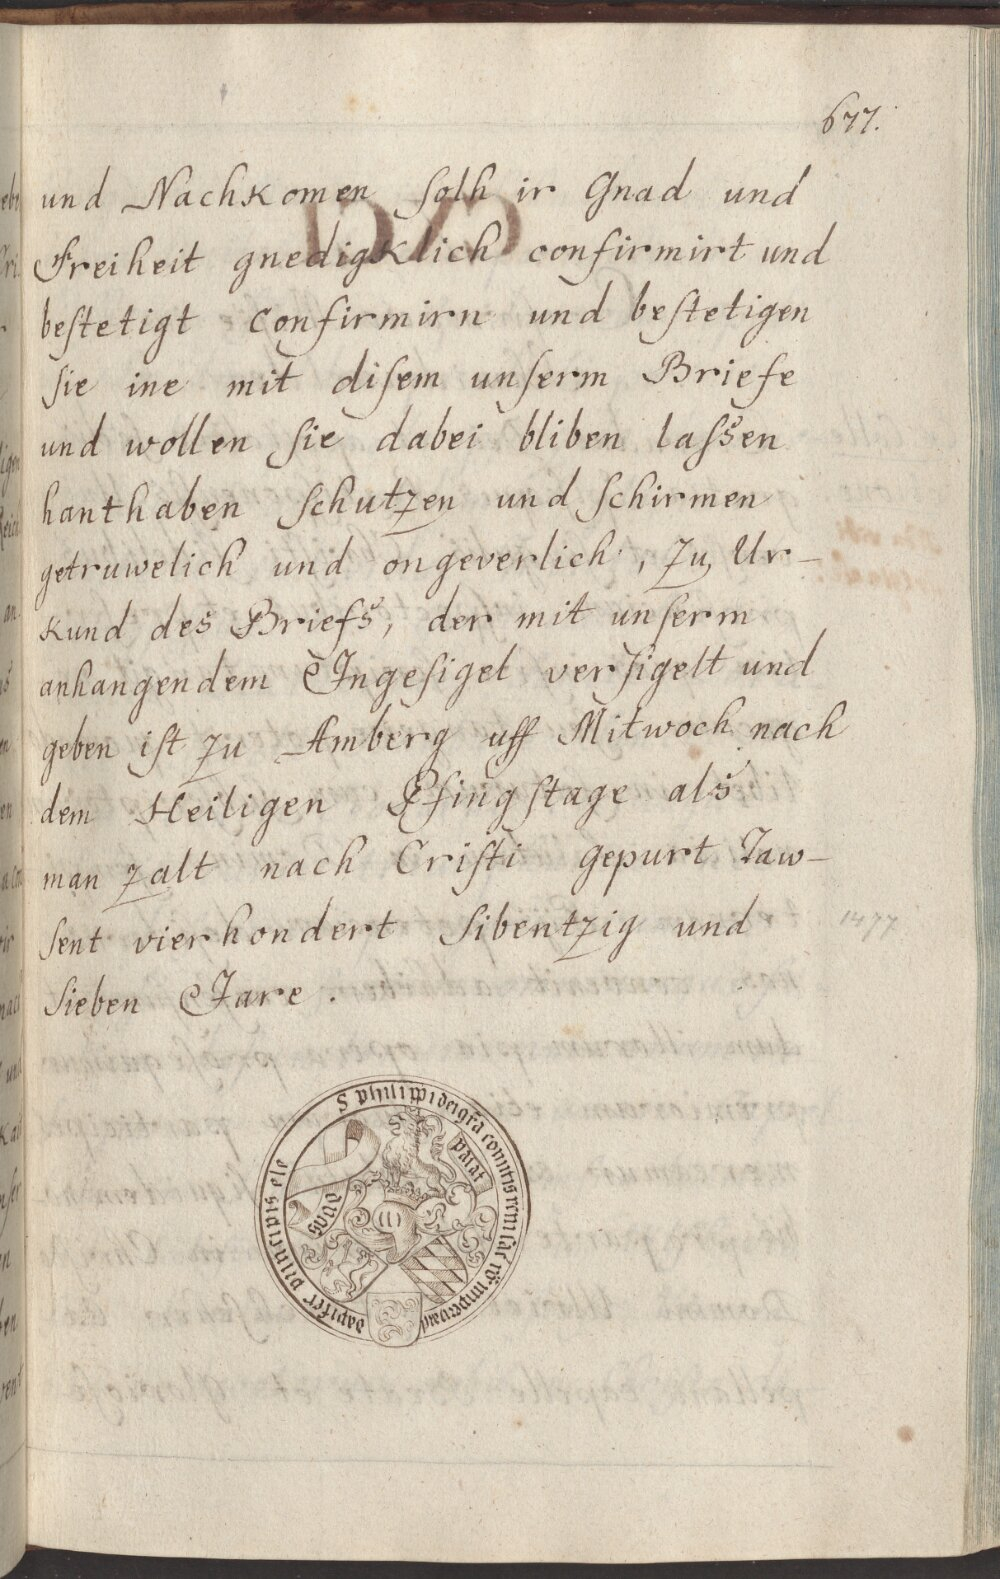 677.
und Nachkomen solh ir Gnad und
Freiheit gnedigklich confirmirt und
bestetigt Confirmirn und bestetigen
sie ine mit disem unserm Briefe
und wollen sie dabei bliben lassen
hanthaben schutzen und schirmen
getruwelich und ongeverlich, zu Ur-
kund des Briefs, der mit unserm
anhangendem Ingesigel versigelt und
geben ist zu Amberg uff Mitwoch nach
dem Heiligen Pfingstage als
man zalt nach Cristi gepurt Taw-
sent vierhondert sibentzig und
1477
sieben Jare.
S philippi dei gra comitis reni sac ro imperii archi
dapifer principis ele
palat
duos